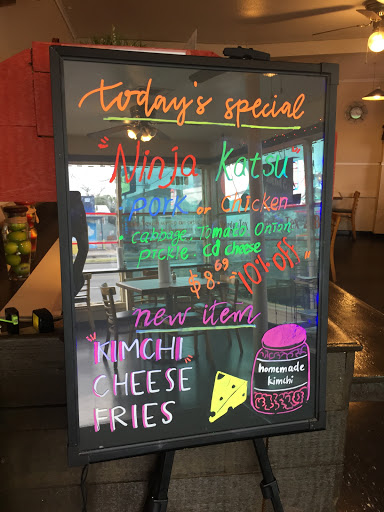 today's special
"Ninja Katsu"
Pork or Chicken
• Cabbage, Tomato Onion
pickle CO cheese
$8.69 "10% off"
new item
"KIMCHI"
CHEESE
FRIES
homemade
kimchi